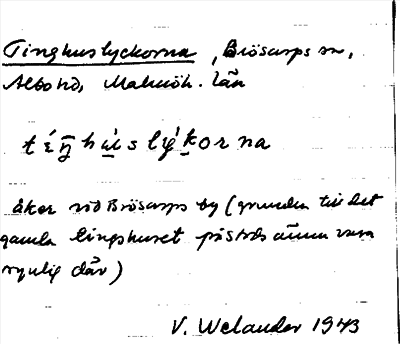 Tinghuslyckorna, Brösarps sn,
Albo hd, Malmöh. län
tíŋhùslýkorna
åker vid Brösarps by (grunden till det
gamla tingshuset påstods ännu vara
synlig där)
V. Welander 1943